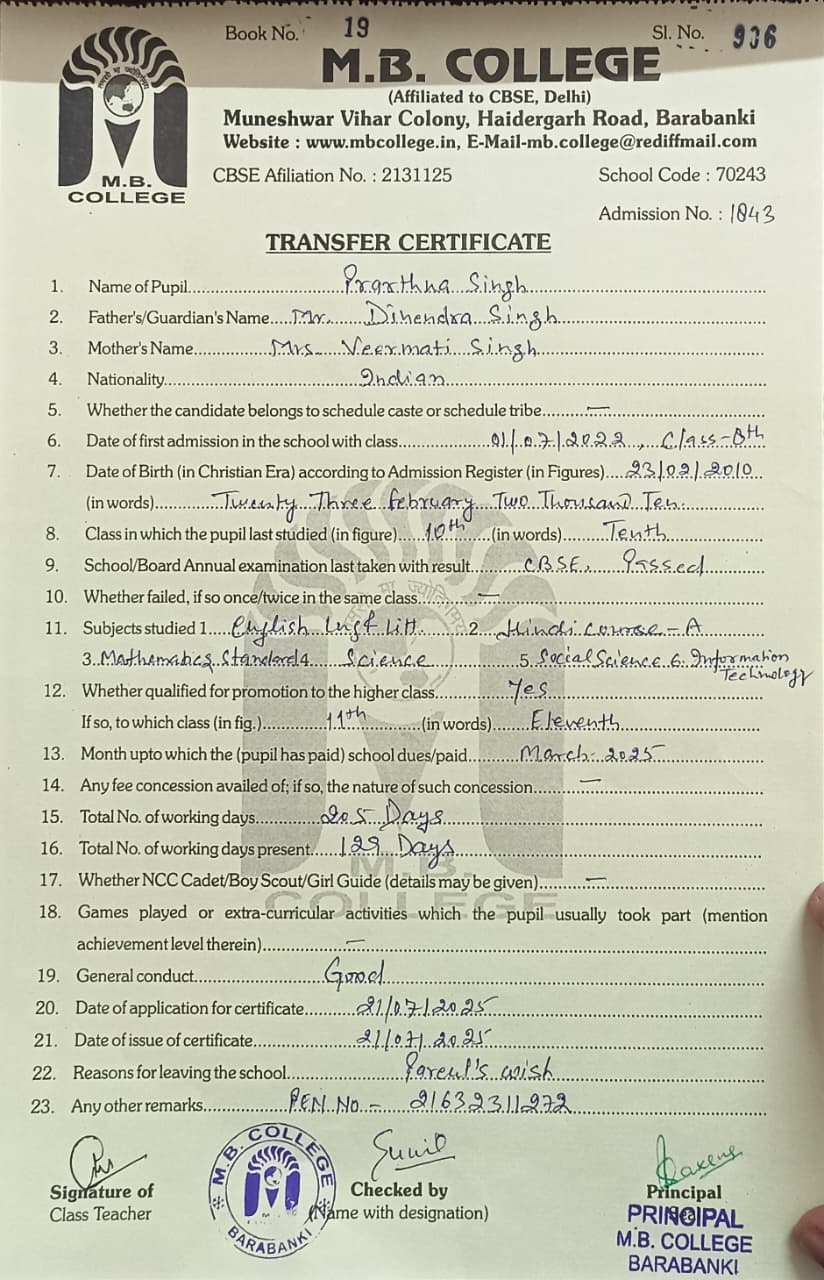 Book No. 19 Sl. No. 936
M.B. COLLEGE
(Affiliated to CBSE, Delhi)
Muneshwar Vihar Colony, Haidergarh Road, Barabanki
Website : www.mbcollege.in, E-Mail-mb.college@rediffmail.com
M.B.
COLLEGE
CBSE Afiliation No. : 2131125 School Code : 70243
Admission No. : 1843
TRANSFER CERTIFICATE
1. Name of Pupil Prarthna Singh
2. Father's/Guardian's Name Mr. Dinendra Singh
3. Mother's Name Mrs Veermati Singh
4. Nationality Indian
5. Whether the candidate belongs to schedule caste or schedule tribe —
6. Date of first admission in the school with class 01/07/2022, Class-8th
7. Date of Birth (in Christian Era) according to Admission Register (in Figures) 23/02/2010
(in words) Twenty Three february Two Thousand Ten
8. Class in which the pupil last studied (in figure) 10th (in words) Tenth
9. School/Board Annual examination last taken with result CBSE, Passed
10. Whether failed, if so once/twice in the same class —
11. Subjects studied 1 English Lng & Litt. 2 Hindi course-A
3. Mathematics Standard 4 Science 5. Social Science 6. Information Technology
12. Whether qualified for promotion to the higher class Yes
If so, to which class (in fig.) 11th (in words) Eleventh
13. Month upto which the (pupil has paid) school dues/paid March-2025
14. Any fee concession availed of; if so, the nature of such concession —
15. Total No. of working days 205 Days
16. Total No. of working days present 129 Days
17. Whether NCC Cadet/Boy Scout/Girl Guide (details may be given) —
18. Games played or extra-curricular activities which the pupil usually took part (mention
achievement level therein) —
19. General conduct Good
20. Date of application for certificate 21/07/2025
21. Date of issue of certificate 21/07/2025
22. Reasons for leaving the school Parent's wish
23. Any other remarks PEN No - 21632311272
M.B. COLLEGE
BARABANKI
Sunil
Saxena
Signature of Checked by Principal
Class Teacher (Name with designation)
PRINCIPAL
M.B. COLLEGE
BARABANKI